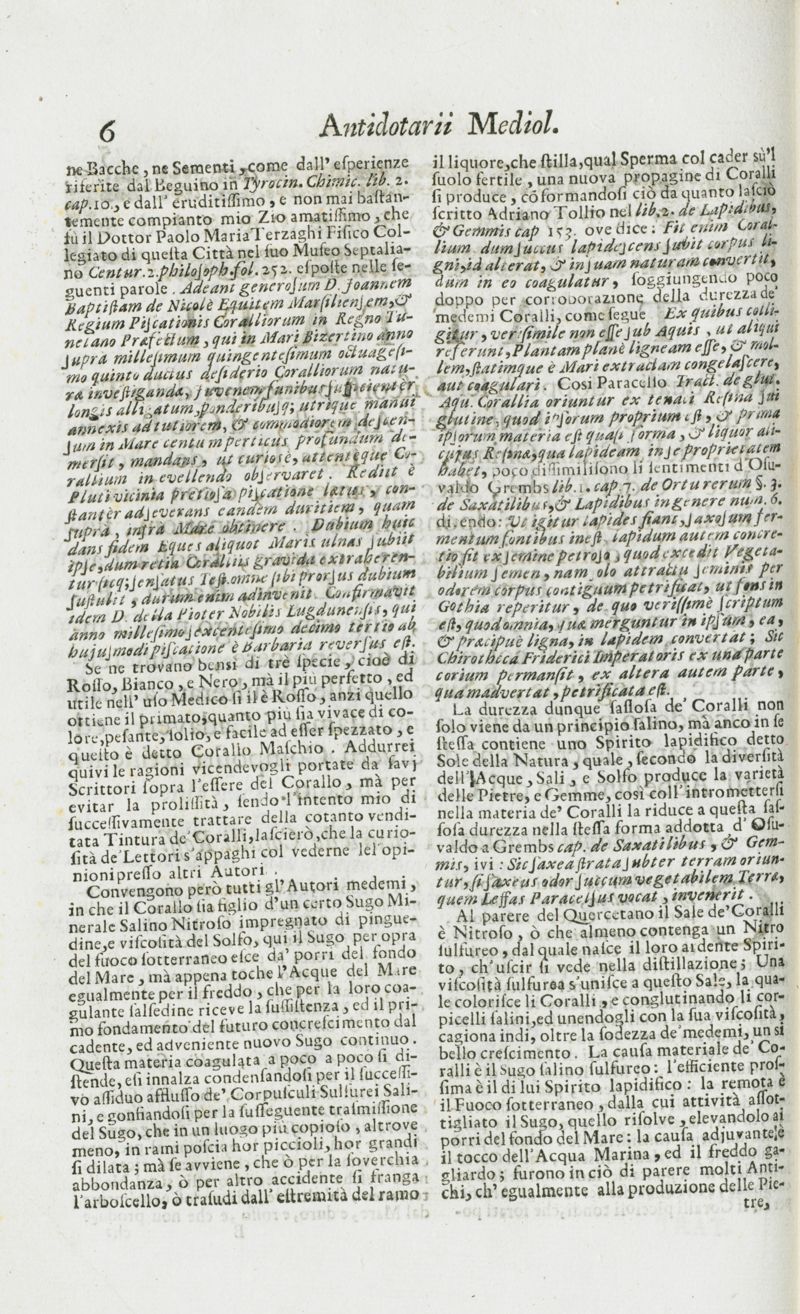 6
Antidotarii Mediol.
ne Bacche, ne Sementi, come dall' eſperienze
riferite dal Beguino in Tyrocin. Chimic. lib. 2.
cap. 10., e dall' eruditiſſimo, e non mai baſtan-
temente compianto mio Zio amatiſſimo, che
fù il Dottor Paolo Maria Terzaghi Fiſico Col-
legiato di queſta Città nel ſuo Muſeo Septalia-
no Centur. 2. philoſoph. fol. 252. eſpoſte nelle ſe-
guenti parole. Adeant generoſum D. Joannem
Baptiſtam de Nicolè Equitem Marſilienſem, &
Regium Piſcationis Coralliorum in Regno Tu-
netano Præfectum, qui in Mari Bizertino anno
ſupra milleſimum quingenteſimum octuageſi-
mo quinto ductus deſiderio Coralliorum natu-
ra inveſtiganda, juvenem funibus ſufficienter
longis alligatum, ponderibuſq; utrique manui
annexis ad tutiorem, & commodiorem deſcen-
ſum in Mare centum perticus profundum de-
merſit, mandans, ut curiosè, attentèque Co-
rallium in evellendo obſervaret. Rediit è
Pluti vicinia pretioſa piſcatione latus, con-
ſtantèr adſeverans eandem duritiem, quam
ſupra, infra Mare obtinere. Dubium huic
dans fidem Eques aliquot Maris ulnas ſubiit
ipſe, dum retia Coralliis gravida extraheren-
tur ſicq; ſenſatus Teſt. omne ſibi prorſus dubium
ſuſtulit, durum enim adinvenit. Confirmavit
idem D. de lla Pioter Nobilis Lugdunenſis, qui
anno milleſimo ſexcenteſimo decimo tertio ab
hujuſmodi piſcatione è Barbaria reverſus eſt.
Se ne trovano bensi di trè ſpecie, cioè di
Roſſo, Bianco, e Nero, mà il più perfetto, ed
utile nell' uſo Medico ſi il è Roſſo, anzi quello
ottiene il primato; quanto più ſia vivace di co-
lore, peſante, ſolio, e facile ad eſſer ſpezzato, e
queſto è detto Corallo Maſchio. Addurrei
quivi le ragioni vicendevogli portate da ſavj
Scrittori ſopra l'eſſere del Corallo, mà per
evitar la proliſſità, ſendo l'intento mio di
ſucceſſivamente trattare della cotanto vendi-
tata Tintura de' Coralli, laſcierò, che la curio-
ſità de' Lettori s'appaghi col vederne le l'opi-
nioni preſſo altri Autori.
Convengono però tutti gl' Autori medemi,
in che il Corallo ſia figlio d'un certo Sugo Mi-
nerale Salino Nitroſo impregnato di pingue-
dine, e viſcoſità del Solfo, qui il Sugo per opra
del fuoco ſotterraneo eſce da' porri del fondo
del Mare, mà appena toche l'Acque del Mare
egualmente per il freddo, che per la loro coa-
gulante ſalſedine riceve la ſuſſiſtenza, ed il pri-
mo fondamento del futuro concreſcimento dal
cadente, ed adveniente nuovo Sugo continuo.
Queſta materia coagulata a poco a poco ſi di-
ſtende, eſi innalza condenſandoſi per il ſucceſſi-
vo aſſiduo affluſſo de' Corpuſculi Sulfurei Sali-
ni, e gonfiandoſi per la ſuſſeguente traſmiſſione
del Sugo, che in un luogo più copioſo, altrove
meno, in rami poſcia hor piccioli, hor grandi
ſi dilata; mà ſe avviene, che ò per la ſoverchia
abbondanza, ò per altro accidente ſi franga
l'arboſcello, ò traſudi dall' eſtremità del ramo
il liquore, che ſtilla, qual Sperma col cader sù'l
ſuolo fertile, una nuova propagine di Coralli
ſi produce, cō formandoſi ciò da quanto laſciò
ſcritto Adriano Tollio nel lib. 2. de Lapidibus,
& Gemmis cap 153. ove dice: Fit enim Coral-
lium dum ſuccus lapideſcens ſubit corpus li-
gni, id alterat, & in ſuam naturam convertit,
dum in eo coagulatur, ſoggiungendo poco
doppo per corroborazione della durezza de'
medemi Coralli, come ſegue Ex quibus colli-
gitur, veriſimile non eſſe ſub Aquis, ut aliqui
referunt, Plantam planè ligneam eſſe, & mol-
lem, ſtatimque è Mari extractam congelaſcere,
aut coagulari. Cosi Paracelſo Tract. de glut.
Aqu. Corallia oriuntur ex tenaci Reſina ſui
glutine, quod ipſorum proprium eſt, & prima
ipſorum materia eſt quaſi forma, & liquor ali-
cujus Reſinæ, qua lapideam in ſe proprietatem
habet, poco diſſimili ſono li ſentimenti d'Oſu-
valdo Grembs lib. 1. cap. 7. de Ortu rerum §. 3.
de Saxatilibus, & Lapidibus in genere num. 6.
dicendo: Ut igitur lapides fiant, ſaxoſum fer-
mentum fontibus ineſt, lapidum autem concre-
tio fit ex ſemine petroſo, quod excedit Vegeta-
bilium ſemen, nam olo attractu ſeminis per
odorem corpus contiguum petrificat, ut fons in
Gothia reperitur, de quo veriſſimè ſcriptum
eſt, quod omnia, quæ merguntur in ipſum, ea,
& præcipuè ligna, in lapidem convertat; Sic
Chirotheca Friderici Imperatoris ex una parte
corium permanſit, ex altera autem parte,
quam advertat, petrificata eſt.
La durezza dunque ſaſſoſa de' Coralli non
ſolo viene da un principio ſalino, mà anco in ſe
ſteſſa contiene uno Spirito lapidifico detto
Sole della Natura, quale, ſecondo la diverſità
dell' Acque, Sali, e Solfo produce la varietà
delle Pietre, e Gemme, così coll' intrometterſi
nella materia de' Coralli la riduce a queſta ſaſ-
ſoſa durezza nella ſteſſa forma addotta d' Oſu-
valdo a Grembs cap. de Saxatilibus, & Gem-
mis, ivi: Sic ſaxea ſtrata ſubter terram oriun-
tur, ſi ſaxeus odor ſuccum vegetabilem Terræ,
quem Leffas Paracelſus vocat, invenerit.
Al parere del Quercetano il Sale de' Coralli
è Nitroſo, ò che almeno contenga un Nitro
ſulfureo, dal quale naſce il loro ardente Spiri-
to, ch' uſcir ſi vede nella diſtillazione; Una
viſcoſità ſulfurea s'uniſce a queſto Sale, la qua-
le coloriſce li Coralli, e conglutinando li cor-
picelli ſalini, ed unendogli con la ſua viſcoſità,
cagiona indi, oltre la ſodezza de' medemi, un sì
bello creſcimento. La cauſa materiale de' Co-
ralli è il Sugo ſalino ſulfureo: l'efficiente proſ-
ſima è il di lui Spirito lapidifico: la remota è
il Fuoco ſotterraneo, dalla cui attività aſſot-
tigliato il Sugo, quello riſolve, elevandolo ai
porri del fondo del Mare: la cauſa adjuvante è
il tocco dell' Acqua Marina, ed il freddo ga-
gliardo; furono in ciò di parere molti Anti-
chi, ch' egualmente alla produzione delle Pie-
tre,